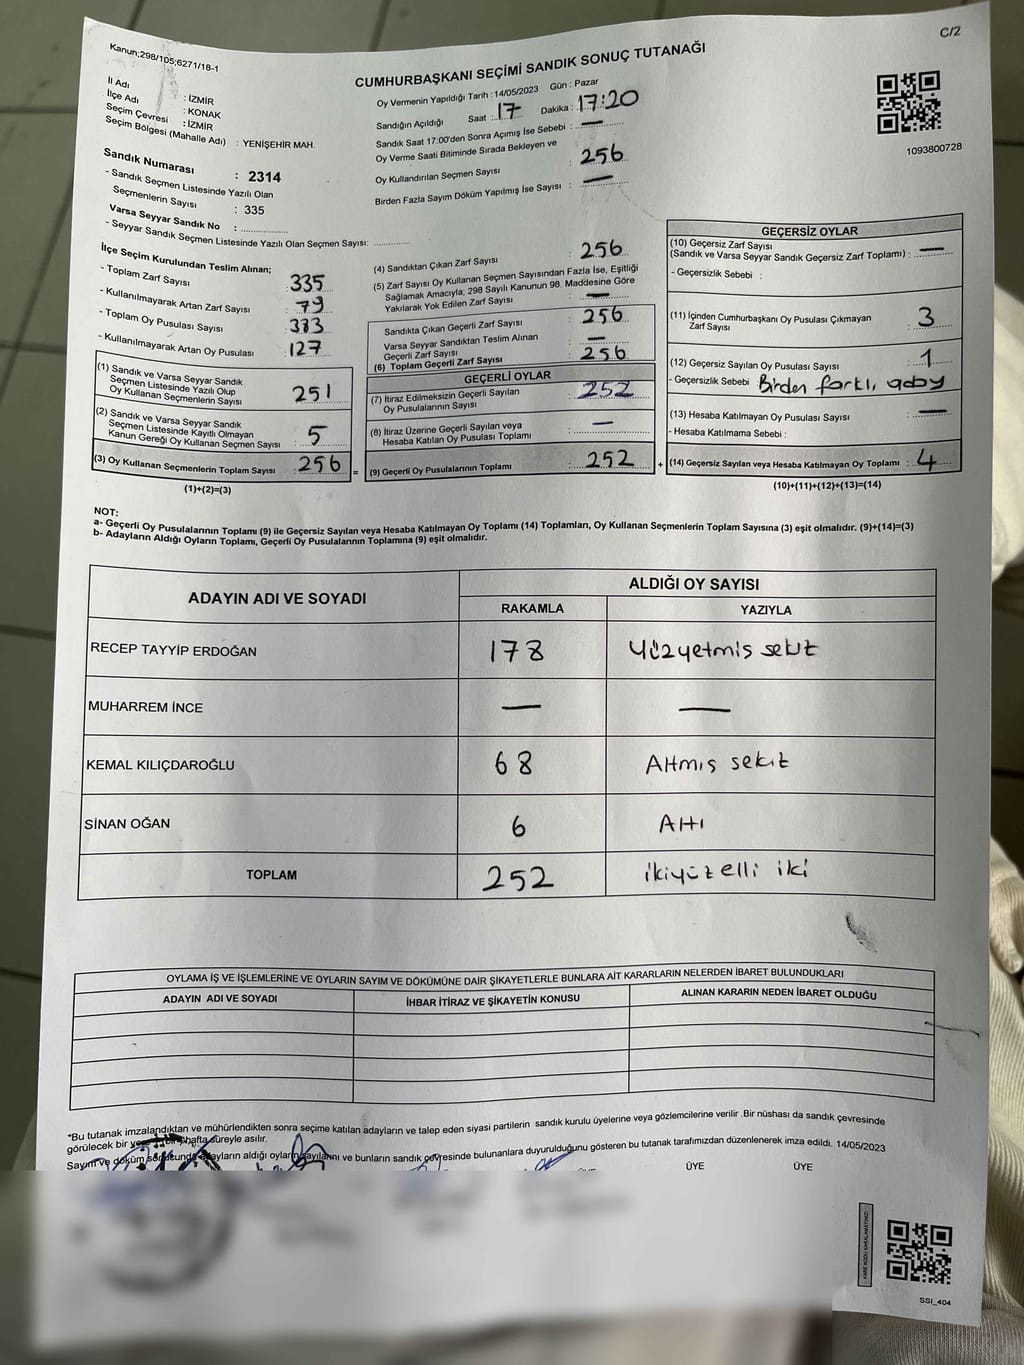 C/2
Kanun;298/105;6271/18-1
CUMHURBAŞKANI SEÇİMİ SANDIK SONUÇ TUTANAĞI
İl Adı : İZMİR
İlçe Adı : KONAK
Seçim Çevresi : İZMİR
Seçim Bölgesi (Mahalle Adı) : YENİŞEHİR MAH.
Oy Vermenin Yapıldığı Tarih : 14/05/2023 Gün : Pazar
Sandığın Açıldığı Saat : 17 Dakika : 17:20
Sandık Saat 17:00'den Sonra Açımış İse Sebebi : —
Oy Verme Saati Bitiminde Sırada Bekleyen ve
Oy Kullandırılan Seçmen Sayısı : 256
Birden Fazla Sayım Döküm Yapılmış İse Sayısı : —
1093800728
Sandık Numarası : 2314
- Sandık Seçmen Listesinde Yazılı Olan
Seçmenlerin Sayısı : 335
Varsa Seyyar Sandık No :
- Seyyar Sandık Seçmen Listesinde Yazılı Olan Seçmen Sayısı:
İlçe Seçim Kurulundan Teslim Alınan;
- Toplam Zarf Sayısı : 335
- Kullanılmayarak Artan Zarf Sayısı : 79
- Toplam Oy Pusulası Sayısı : 383
- Kullanılmayarak Artan Oy Pusulası : 127
(1) Sandık ve Varsa Seyyar Sandık
Seçmen Listesinde Yazılı Olup
Oy Kullanan Seçmenlerin Sayısı : 251
(2) Sandık ve Varsa Seyyar Sandık
Seçmen Listesinde Kayıtlı Olmayan
Kanun Gereği Oy Kullanan Seçmen Sayısı 5
(3) Oy Kullanan Seçmenlerin Toplam Sayısı : 256 =
(1)+(2)=(3)
(4) Sandıktan Çıkan Zarf Sayısı : 256
(5) Zarf Sayısı Oy Kullanan Seçmen Sayısından Fazla İse, Eşitliği
Sağlamak Amacıyla; 298 Sayılı Kanunun 98. Maddesine Göre
Yakılarak Yok Edilen Zarf Sayısı : —
Sandıkta Çıkan Geçerli Zarf Sayısı : 256
Varsa Seyyar Sandıktan Teslim Alınan
Geçerli Zarf Sayısı : —
(6) Toplam Geçerli Zarf Sayısı : 256
GEÇERLİ OYLAR
(7) İtiraz Edilmeksizin Geçerli Sayılan
Oy Pusulalarının Sayısı : 252
(8) İtiraz Üzerine Geçerli Sayılan veya
Hesaba Katılan Oy Pusulası Toplamı : —
(9) Geçerli Oy Pusulalarının Toplamı : 252 +
GEÇERSİZ OYLAR
(10) Geçersiz Zarf Sayısı
(Sandık ve Varsa Seyyar Sandık Geçersiz Zarf Toplamı) : —
- Geçersizlik Sebebi :
(11) İçinden Cumhurbaşkanı Oy Pusulası Çıkmayan
Zarf Sayısı : 3
(12) Geçersiz Sayılan Oy Pusulası Sayısı : 1
- Geçersizlik Sebebi : Birden farklı, aday
(13) Hesaba Katılmayan Oy Pusulası Sayısı : —
- Hesaba Katılmama Sebebi :
(14) Geçersiz Sayılan veya Hesaba Katılmayan Oy Toplamı : 4
(10)+(11)+(12)+(13)=(14)
NOT:
a- Geçerli Oy Pusulalarının Toplamı (9) ile Geçersiz Sayılan veya Hesaba Katılmayan Oy Toplamı (14) Toplamları, Oy Kullanan Seçmenlerin Toplam Sayısına (3) eşit olmalıdır. (9)+(14)=(3)
b- Adayların Aldığı Oyların Toplamı, Geçerli Oy Pusulalarının Toplamına (9) eşit olmalıdır.
ADAYIN ADI VE SOYADI ALDIĞI OY SAYISI
RAKAMLA YAZIYLA
RECEP TAYYİP ERDOĞAN 178 Yüzyetmiş sekiz
MUHARREM İNCE — —
KEMAL KILIÇDAROĞLU 68 Altmış sekiz
SİNAN OĞAN 6 Altı
TOPLAM 252 ikiyüzelli iki
OYLAMA İŞ VE İŞLEMLERİNE VE OYLARIN SAYIM VE DÖKÜMÜNE DAİR ŞİKAYETLERLE BUNLARA AİT KARARLARIN NELERDEN İBARET BULUNDUKLARI
ADAYIN ADI VE SOYADI İHBAR İTİRAZ VE ŞİKAYETİN KONUSU ALINAN KARARIN NEDEN İBARET OLDUĞU
*Bu tutanak imzalandıktan ve mühürlendikten sonra seçime katılan adayların ve talep eden siyasi partilerin sandık kurulu üyelerine veya gözlemcilerine verilir .Bir nüshası da sandık çevresinde
görülecek bir yere bir hafta süreyle asılır.
Sayım ve döküm sonucunda adayların aldığı oyların sayılarını ve bunların sandık çevresinde bulunanlara duyurulduğunu gösteren bu tutanak tarafımızdan düzenlenerek imza edildi. 14/05/2023
ÜYE ÜYE
KARE KODU KARALAMAYINIZ!
SSİ_404